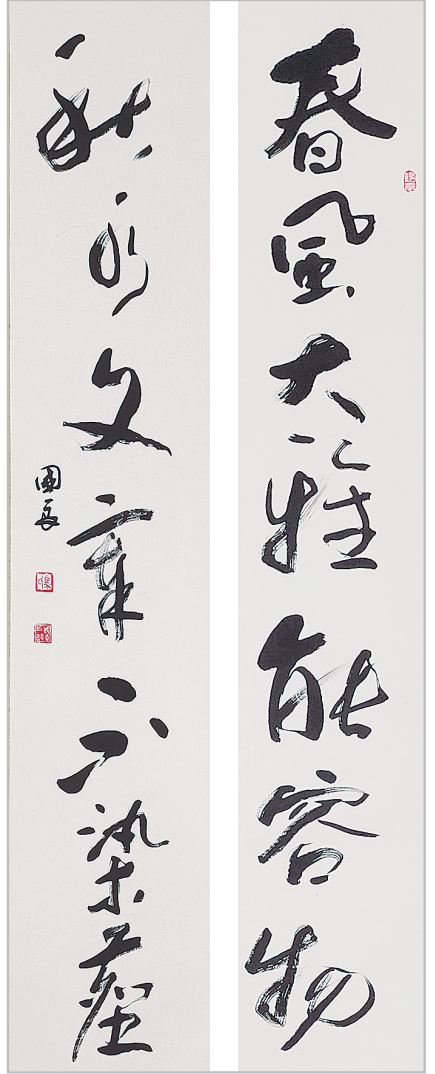 春風大雅能容物
秋水文章不染塵
國良